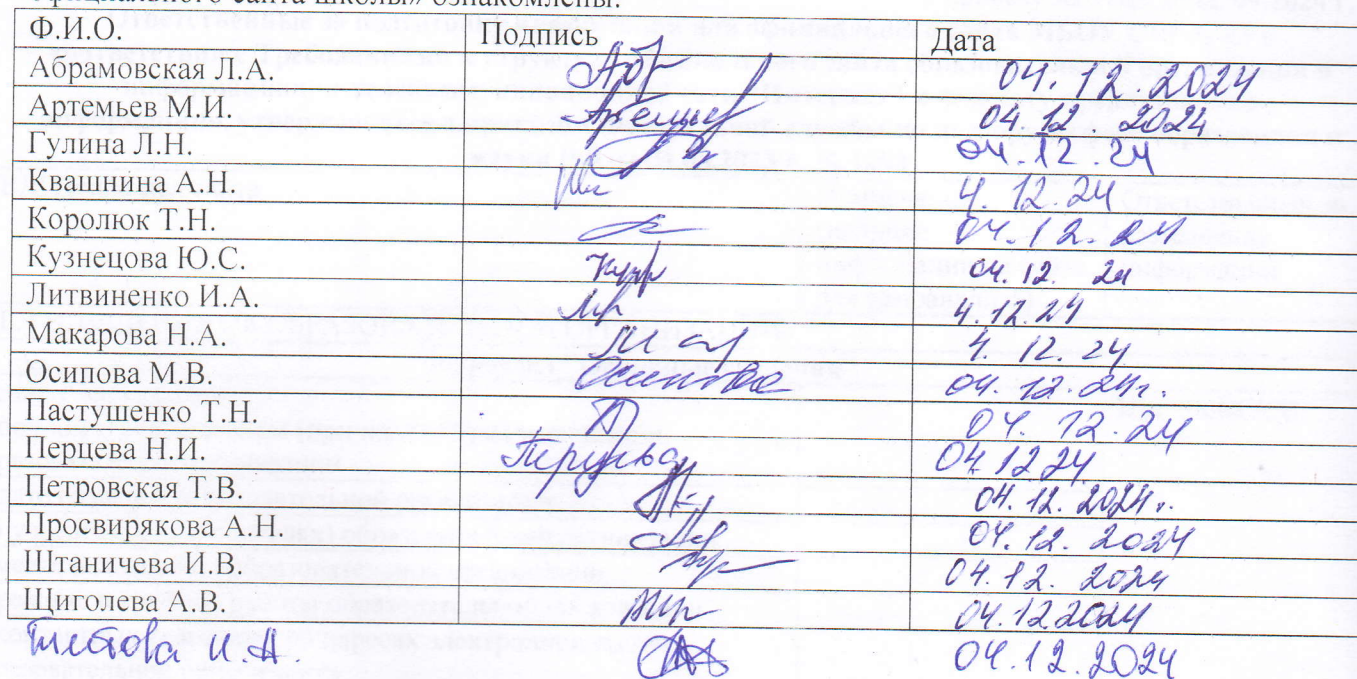 официального сайта школы» ознакомлены.
Ф.И.О. Подпись Дата
Абрамовская Л.А. 04.12.2024
Артемьев М.И. 04.12.2024
Гулина Л.Н. 04.12.24
Квашнина А.Н. 4.12.24
Королюк Т.Н. 04.12.24
Кузнецова Ю.С. 04.12.24
Литвиненко И.А. 4.12.24
Макарова Н.А. 4.12.24
Осипова М.В. Осипова 04.12.24г.
Пастушенко Т.Н. 04.12.24
Перцева Н.И. Перцева 04.12.24
Петровская Т.В. 04.12.2024г.
Просвирякова А.Н. 04.12.2024
Штаничева И.В. 04.12.2024
Щиголева А.В. 04.12.2024
И.А 04.12.2024